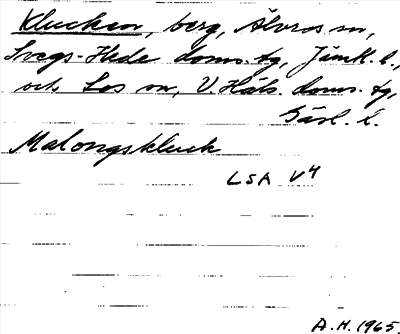 Klucken, berg, Älvros sn,
Svegs-Hede doms. tg, Jämtl. l.,
och Los sn, V. Häls. doms. tg,
Gävl. l.
Malongskluck
LSA V4
A.H. 1965.